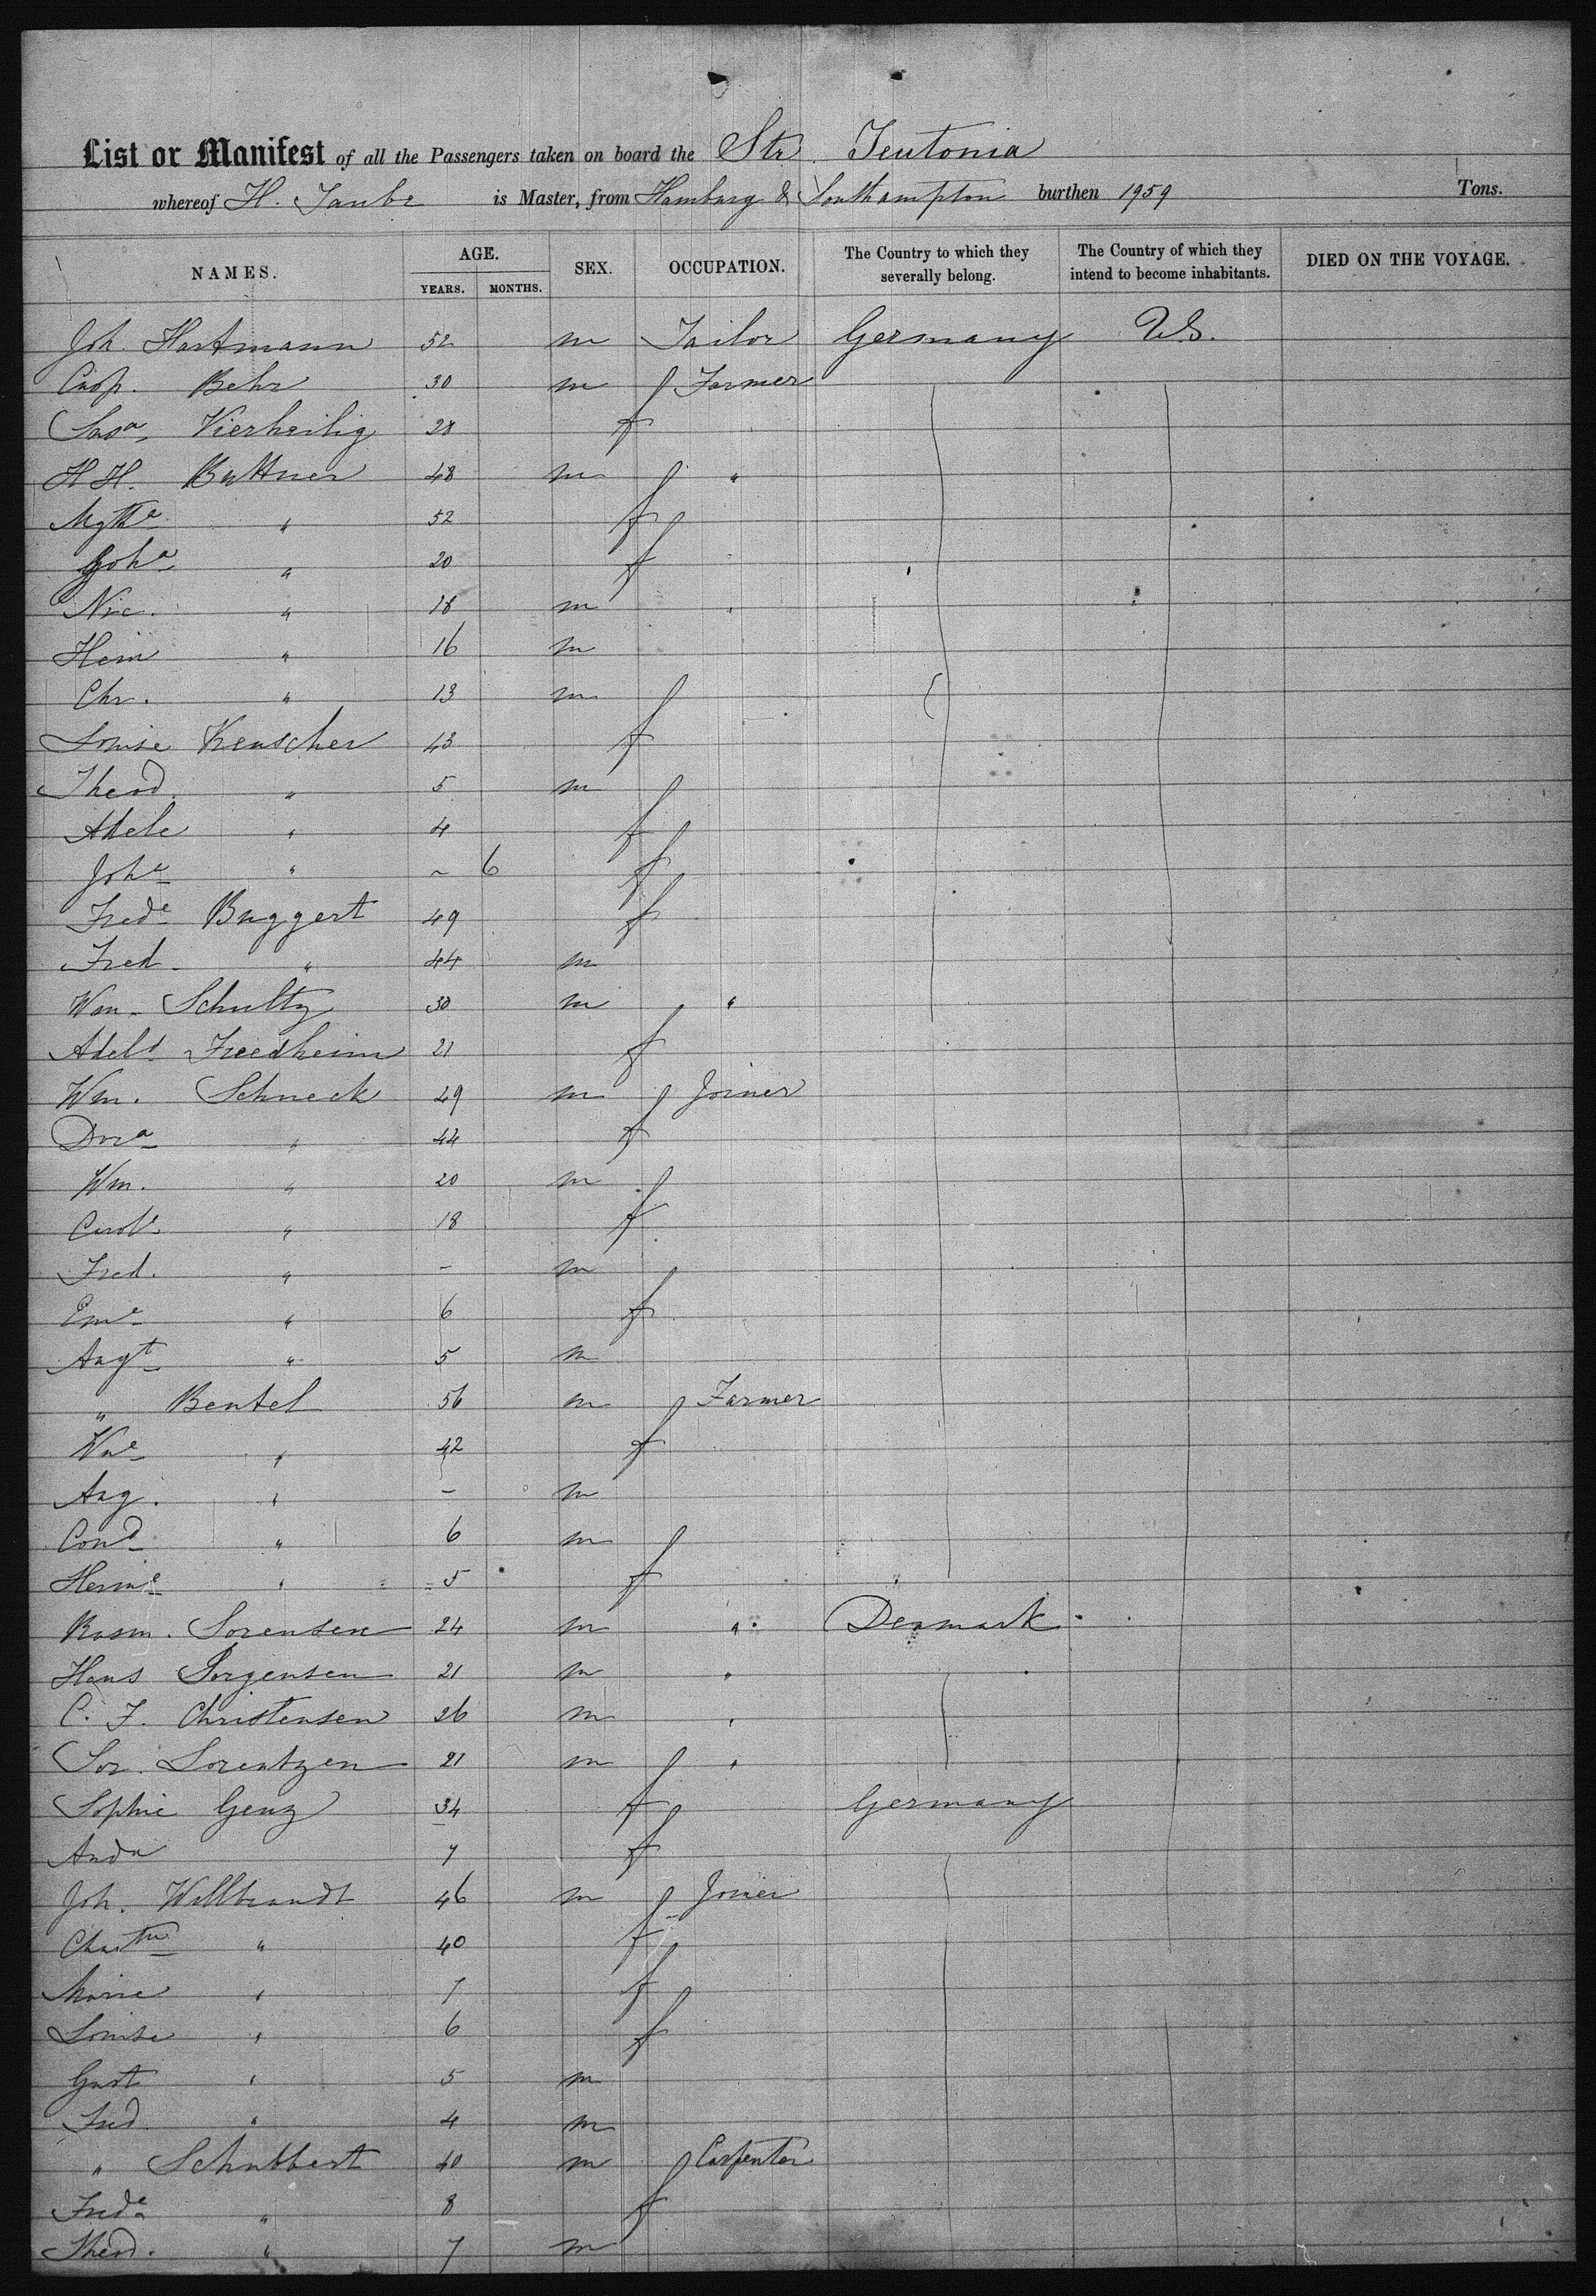 List or Manifest of all the Passengers taken on board the Str. Teutonia
whereof H. Taube is Master, from Hamburg & Southampton burthen 1959 Tons.
NAMES. AGE. YEARS. MONTHS. SEX. OCCUPATION. The Country to which they severally belong. The Country of which they intend to become inhabitants. DIED ON THE VOYAGE.
Joh. Hartmann 52 m Tailor Germany U.S.
Casp. Behr 30 m Farmer
Vierheilig 28 f
H H. Buttner 48 m "
Mgtha " 52 f
Joha " 20 f
Nic. " 18 m "
Hein " 16 m
Chr. " 13 m
Louise Kreuscher 43 f
Theod. " 5 m
Adele " 4 f
Johe " ~ 6 f
Frede Buggert 49 f
Fred " 44 m
Wm. Schultz 30 m "
Adeld Freedheim 21 f
Wm. Schneck 29 m Joiner
Dora " 44 f
Wm. " 20 m
Carole " 18 f
Fred. " - m
Eme " 6 f
Augt " 5 m
" Bentel 56 m Farmer
Wme " 42 f
Aug. " - m
Cond " 6 m
Herme " 5 f
Rasm. Sorensen 24 m " Denmark
Hans Jorgensen 21 m "
C. F. Christensen 26 m "
Sor. Lorentzen 21 m "
Sophie Genz 34 f Germany
Anda 7 f
Joh. Willbrandt 46 m Joiner
" 40 f
Marie " 7 f
Louise " 6 f
Gust " 5 m
Fred " 4 m
" Schubbert 40 m Carpenter
Freda " 8 f
Theod. " 7 m